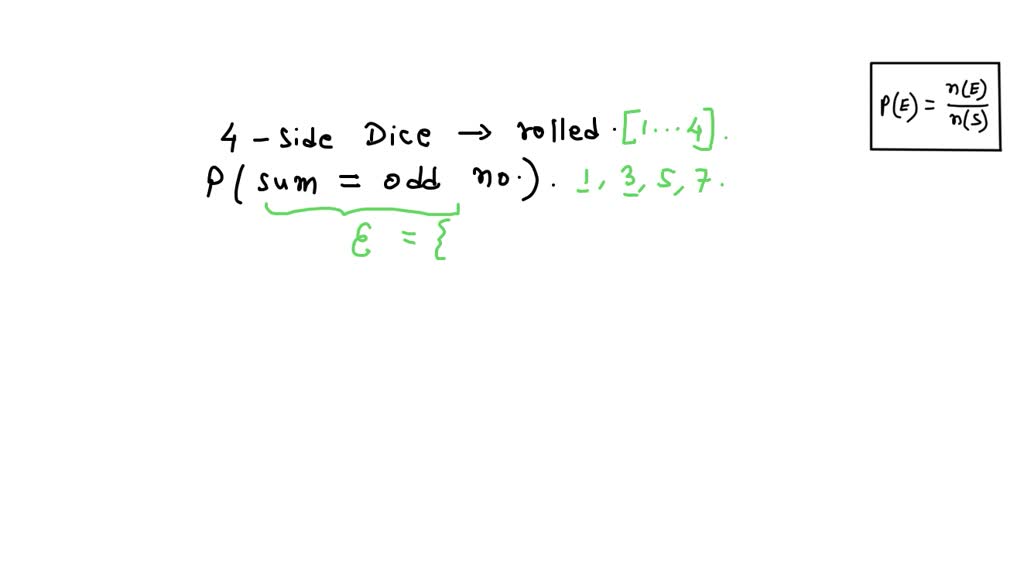 P(E) = n(E)/n(S)
4 - side Dice → rolled. [1...4].
P(sum = odd no.). 1, 3, 5, 7.
E = {